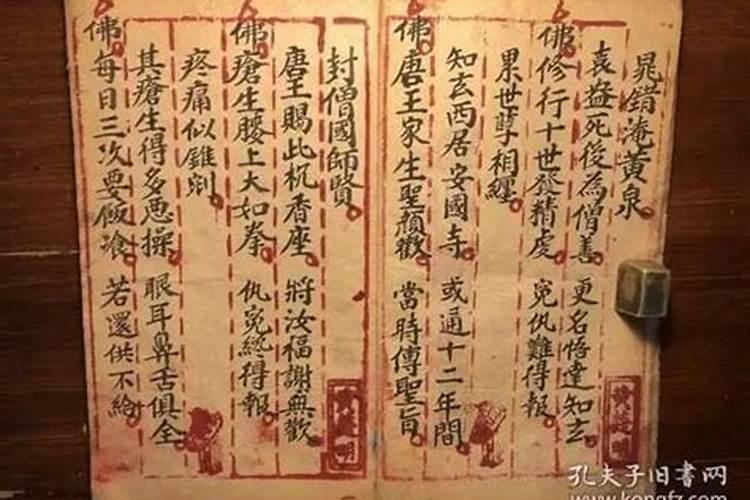 晁錯淹黃泉
袁盎死後為僧善 更名悟達知玄
佛修行十世發精虔 冤仇難得報
累世孽相纏
知玄西居安國寺 或通十二年間
佛唐王家生聖顏歡 當時傳聖旨
封僧國師賢
唐王賜此杌香座 將汝福謝無歡
佛瘡生腰上大如拳 仇冤終得報
疼痛似錐剜
其瘡生得多悪操 眼耳鼻舌俱全
佛每日三次要飯飡 若還供不給
孔夫子旧书网
www.kongfz.com